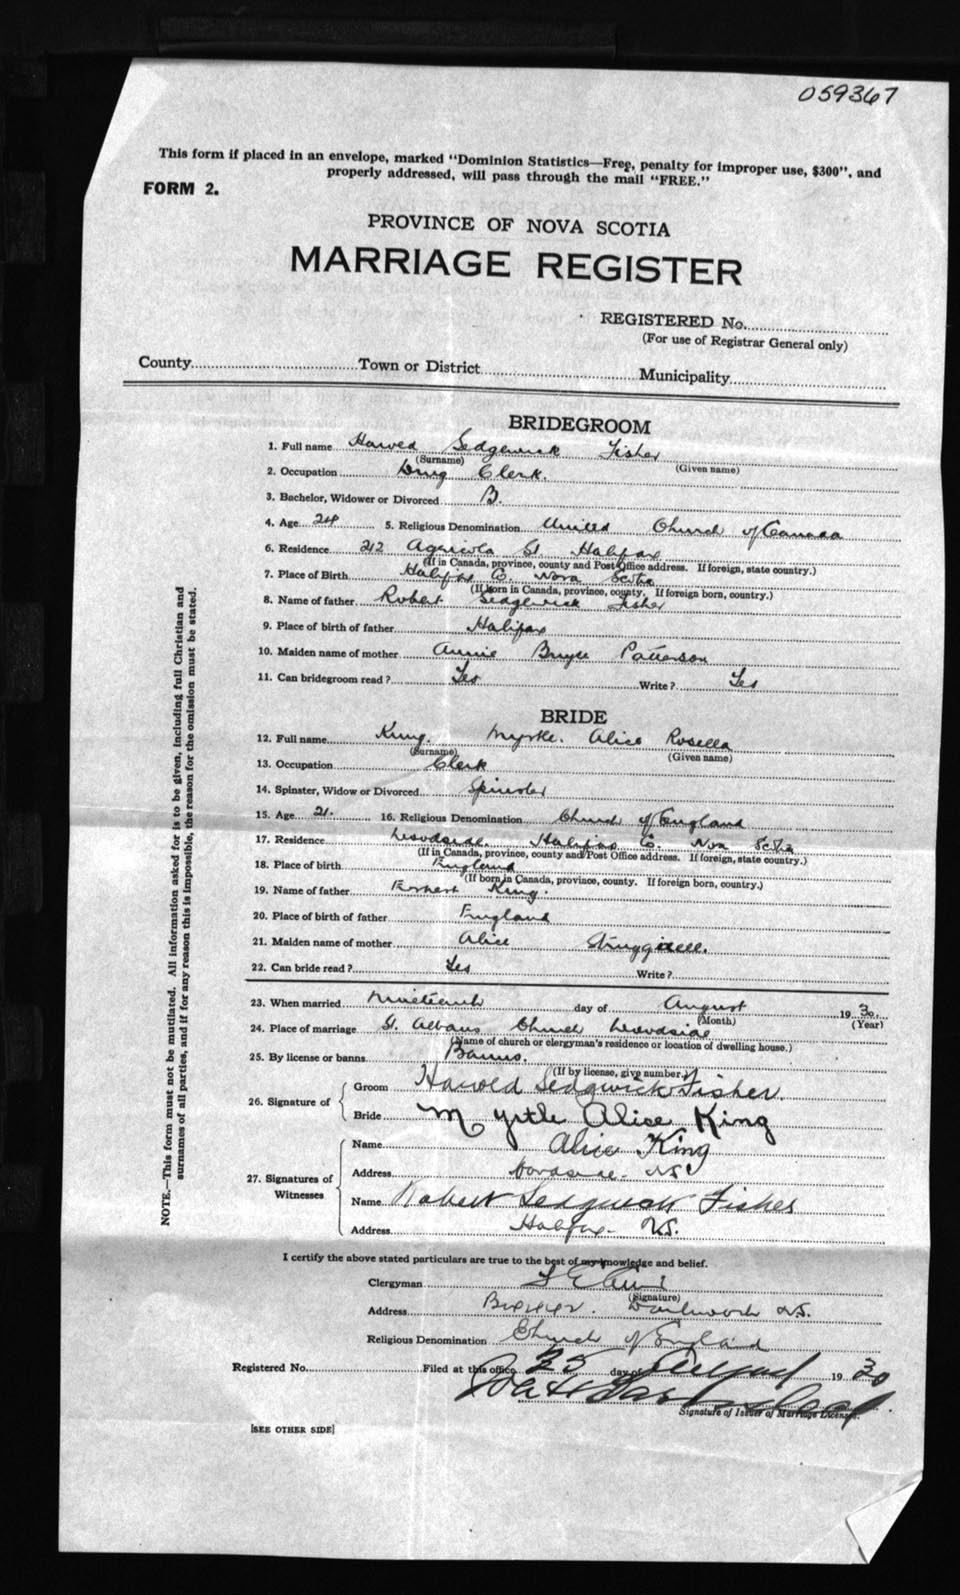 059367
This form if placed in an envelope, marked "Dominion Statistics—Free, penalty for improper use, $300", and
properly addressed, will pass through the mail "FREE."
FORM 2.
PROVINCE OF NOVA SCOTIA
MARRIAGE REGISTER
REGISTERED No.
(For use of Registrar General only)
County Town or District Municipality
BRIDEGROOM
1. Full name Harold Sedgewick Fisher
(Surname) (Given name)
2. Occupation Drug Clerk.
3. Bachelor, Widower or Divorced B.
4. Age 24 5. Religious Denomination United Church of Canada
6. Residence 212 Agricola St Halifax
(If in Canada, province, county and Post Office address. If foreign, state country.)
7. Place of Birth Halifax Co Nova Scotia
(If born in Canada, province, county. If foreign born, country.)
8. Name of father Robert Sedgewick Fisher
9. Place of birth of father Halifax
10. Maiden name of mother Annie Bruce Patterson
11. Can bridegroom read? Yes Write? Yes
BRIDE
12. Full name King. Myrtle. Alice Rosella
(Surname) (Given name)
13. Occupation Clerk
14. Spinster, Widow or Divorced Spinster
15. Age 21. 16. Religious Denomination Church of England
17. Residence Woodside. Halifax Co. Nova Scotia
(If in Canada, province, county and Post Office address. If foreign, state country.)
18. Place of birth England
(If born in Canada, province, county. If foreign born, country.)
19. Name of father Ernest King.
20. Place of birth of father England
21. Maiden name of mother Alice
22. Can bride read? Yes Write?
23. When married Nineteenth day of August 1930.
(Month) (Year)
24. Place of marriage St. Albans Church Woodside
(Name of church or clergyman's residence or location of dwelling house.)
25. By license or banns Banns.
(If by license, give number.)
26. Signature of Groom Harold Sedgwick Fisher.
Bride Myrtle Alice King
27. Signatures of Witnesses
Name Alice King
Address Woodside. N.S
Name Robert Sedgwick Fisher
Address Halifax. N.S.
I certify the above stated particulars are true to the best of my knowledge and belief.
Clergyman
(Signature)
Address Dartmouth N.S.
Religious Denomination Church of England
Registered No. Filed at this office 25 day of August 1930
Signature of Issuer of Marriage Licenses.
[SEE OTHER SIDE]
NOTE.—This form must not be mutilated. All information asked for is to be given, including full Christian and
surnames of all parties, and if for any reason this is impossible, the reason for the omission must be stated.